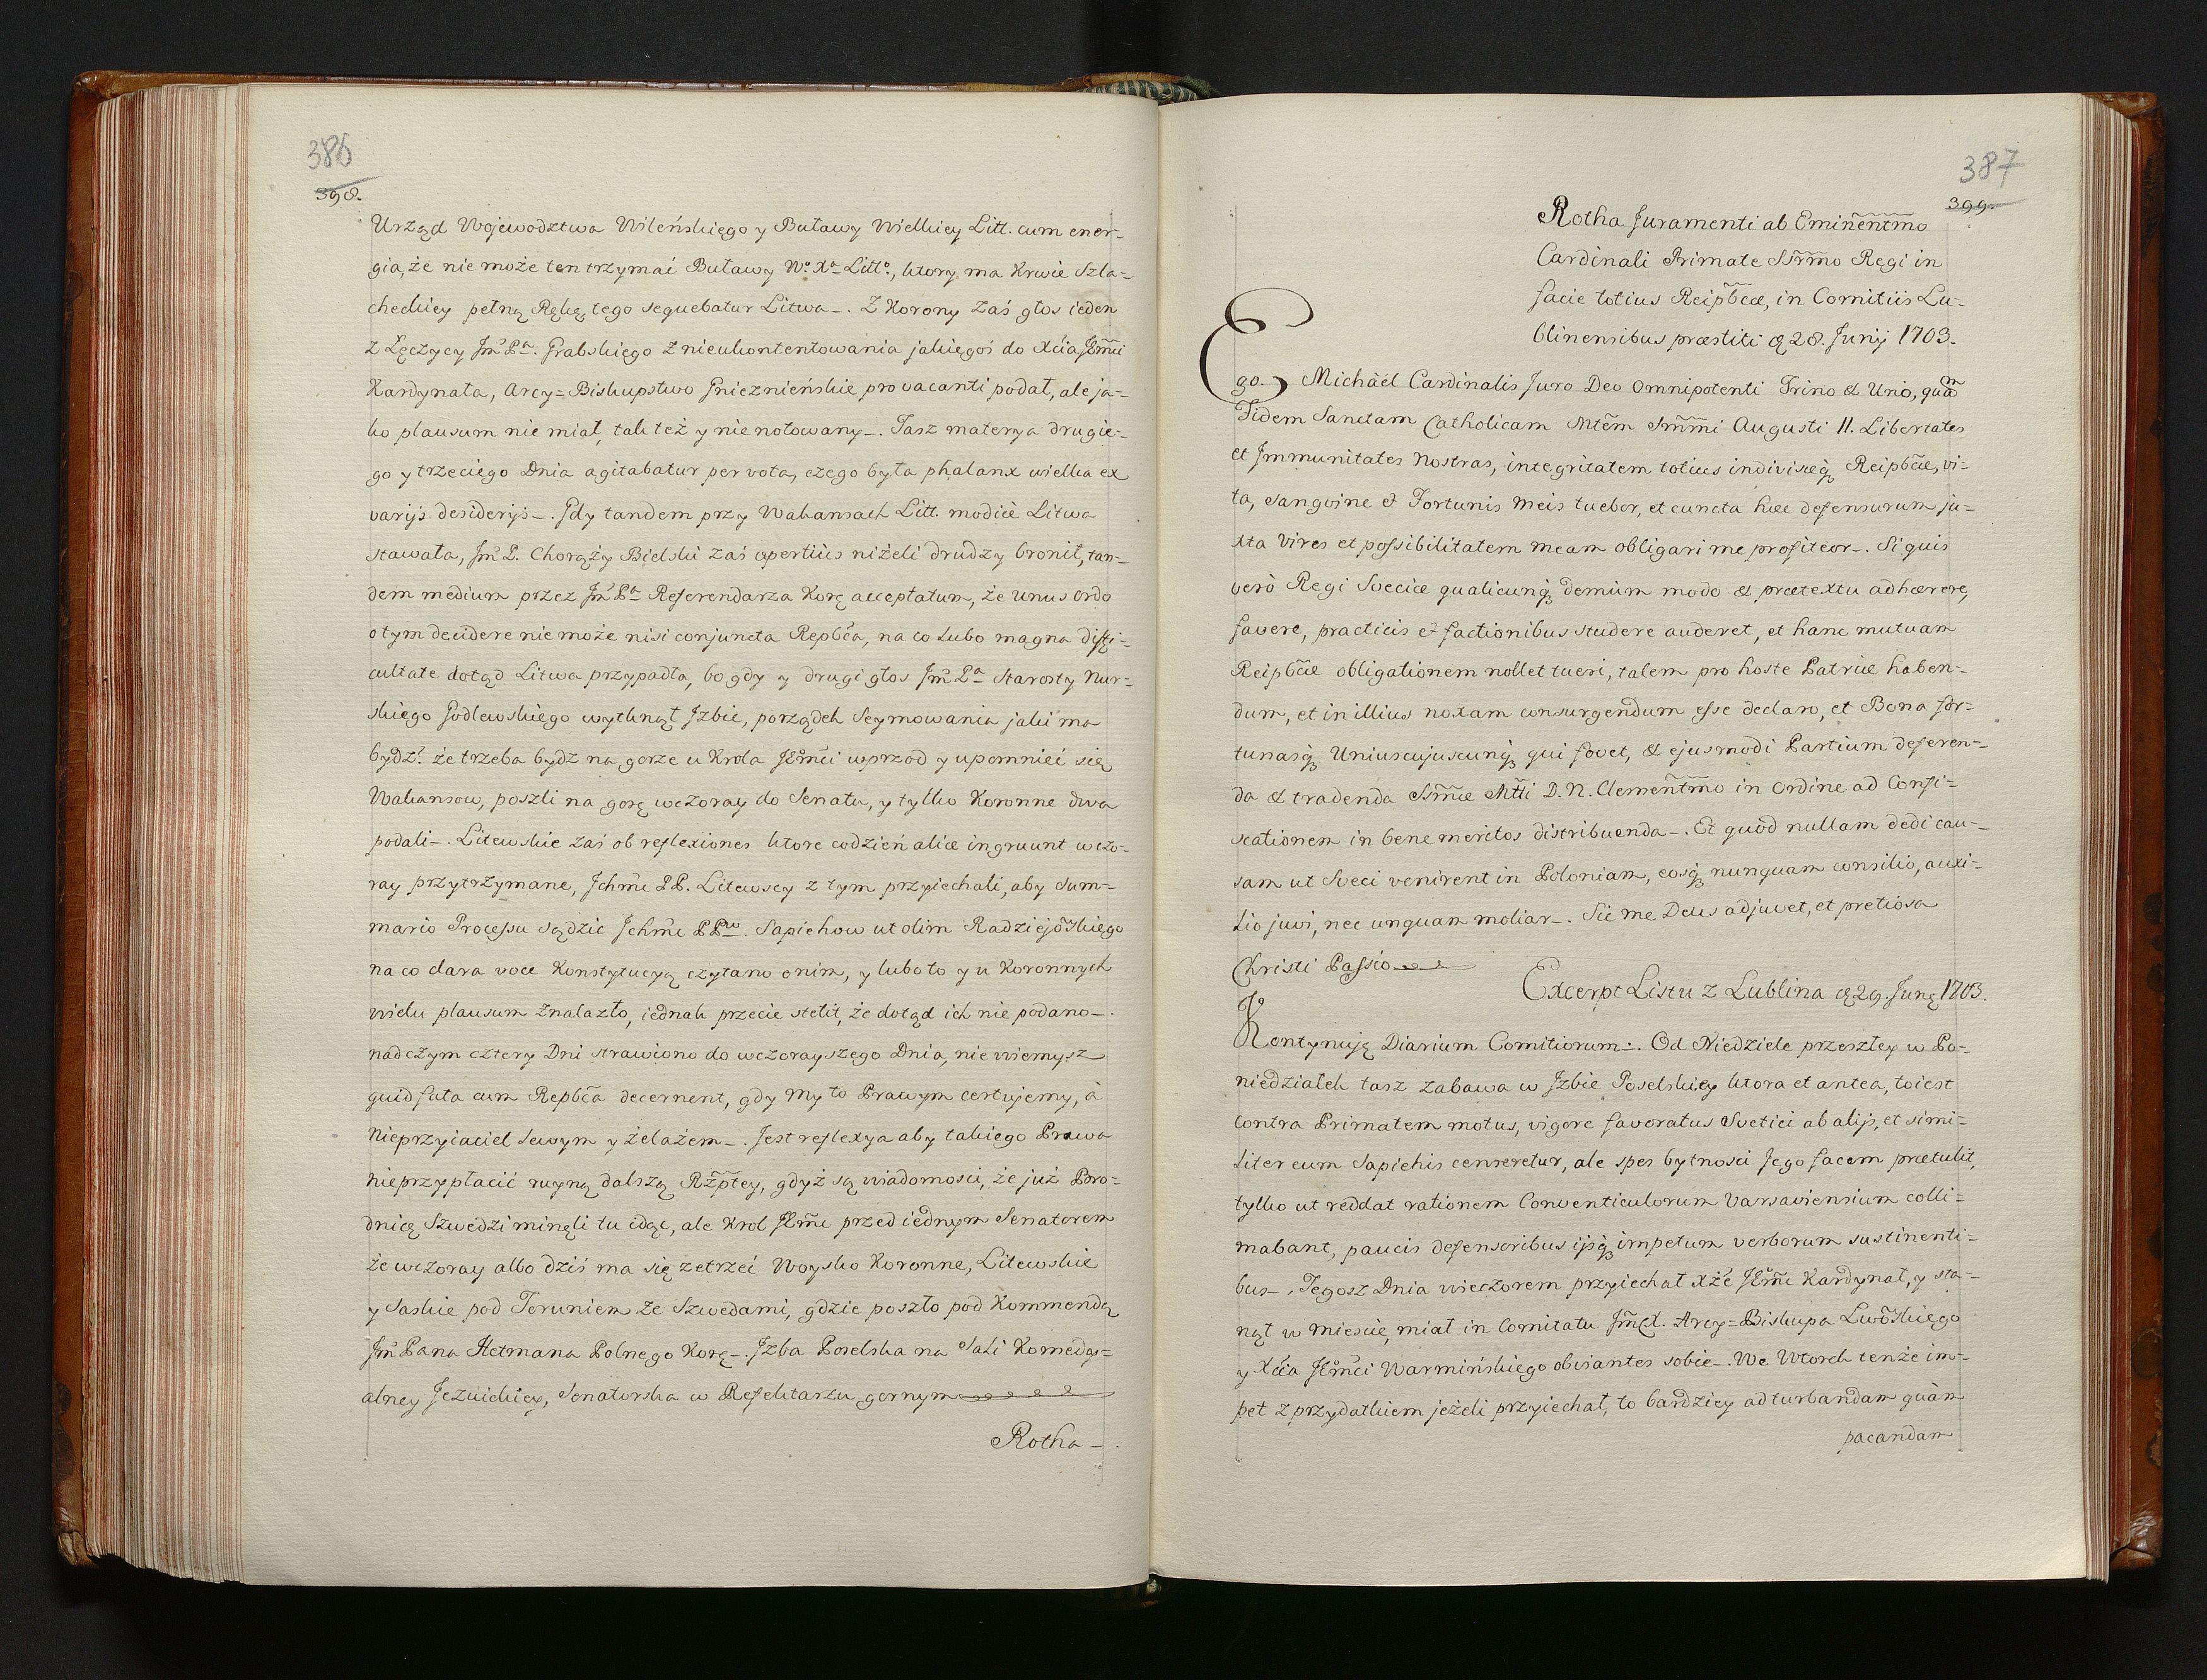 386
398.
Urząd Wojewodztwa Wileńskiego y Buławy Wielkiey Litt. cum ener-
gia, że nie może ten trzymać Buławy Wº Xª Littº, ktory ma Krwie Szla-
checkiey pełną Rękę, tego sequebatur Litwa-. Z Korony zaś głos ieden
z Łęczycy Jmᵖ Pª. Grabskiego z nieukontentowania jakiegoś do Xćia JEm̃ci
Kardynała, Arcy=Biskupstwo Gnieznieńskie pro vacanti podał, ale ja-
ko plausum nie miał, tak też y nie notowany-. Tasz materya drugie-
go y trzeciego Dnia agitabatur per vota, czego była phalanx wielka ex
varijs desiderijs-. Gdy tandem przy Wakansach Litt. modicè Litwa
stawała, Jmᵖ P. Chorąży Bielski zaś apertiùs niżeli drudzy bronił, tan-
dem medium przez Jmᵖ Pª Referendarza Korę acceptatum, że unus ordo
o tym decidere nie może nisi conjuncta Repb̃ca, na co lubo magna diffi-
cultate dotąd Litwa przypadła, bo gdy y drugi głos Jmᵖ Pª Starosty Nur-
skiego Godlewskiego wytknął Jzbie, porządek Seymowania jaki ma
bydz? że trzeba bydz na gorze u Krola JEm̃ci wprzod y upomnieć się
Wakansow, poszli na gorę wczoray do Senatu, y tylko Koronne dwa
podali-. Litewskie zaś ob reflexiones ktore codzień aliæ ingruunt wczo-
ray przytrzymane, Jchm̃c PP. Litewscy z tym przyiechali, aby sum-
mario Processu sądzić Jchm̃c PPʷ. Sapiehow ut olim Radziejõskiego
na co clara voce Konstytucyą czytano onim, y lubo to y u Koronnych
wielu plausum znalazło, iednak przecie stetit, że dotąd ich nie podano-.
nad czym cztery Dni strawiono do wczorayszego Dnia, nie wiemy sz
quid fata cum Repb̃ca decernent, gdy my to Prawym certujemy, à
Nieprzyiaciel sewym y żelazem-. Jest reflexya aby takiego Prawa
nieprzypłacić ruyną dalszą Rz̃ptey, gdyż są wiadomości, że już Bro-
dnicę Szwedzi minęli tu idąc, ale Krol JEm̃c przed iednym Senatorem
że wczoray albo dziś ma się zetrzeć Woysko Koronne, Litewskie
y Saskie pod Toruniem ze Szwedami, gdzie poszło pod Kommendą
Jmᵖ Pana Hetmana Polnego Korę-. Jzba Poselska na Sali Komedy-
alney Jezuickiey, Senatorska w Refektarzu gornym
Rotha-.
387
399.
Rotha Juramenti ab Eminentm̃o
Cardinali Primate Ssr̃mo Regi in
facie totius Reipb̃cæ, in Comitiis Lu-
blinensibus præstiti ą 28. Junij 1703.
Ego. Michäel Cardinalis Juro Deo Omnipotenti Trino & Uno, quam
Fidem Sanctam Catholicam Mtẽm Smm̃i Augusti II. Libertates
et Jmmunitates Nostras, integritatem totius indivisæq̨ Reipb̃cæ, vi-
ta, sangvine & Fortunis meis tuebor, et cuncta hæc defensurum ju-
xta vires et possibilitatem meam obligari me profiteor-. Si quis
verò Regi Sveciæ qualicunq̨ demùm modo & prætextu adhærere,
favere, practicis & factionibus studere auderet, et hanc mutuam
Reipb̃cæ obligationem nollet tueri, talem pro hoste Patriæ haben-
dum, et in illius noxam consurgendum esse declaro, et Bona for-
tunasq̨ Uniuscujuscunq̨ qui fovet, & ejusmodi Partium deferen-
da & tradenda Ssm̃æ Mtti D. N. Clementm̃o in Ordine ad Confi-
scationem in bene meritos distribuenda-. Et quòd nullam dedi cau-
sam ut Sveci venirent in Poloniam, eosq̨ nunquam consilio, auxi-
lio juvi, nec unquam moliar-. Sic me Deus adjuvet, et pretiosa
Christi Passio
Excerpt Listu z Lublina ą 29. Junę 1703.
Kontynuię Diarium Comitiorum-. Od Niedziele przeszłey w Po-
niedziałek tasz zabawa w Jzbie Poselskiey ktora et antea, toiest
contra Primatem motus, vigore favoratus Svetici ab alijs, et simi-
liter cum Sapiehis censeretur, ale spes bytności Jego facem prætulit,
tylko ut reddat rationem Conventiculorum Varsaviensium colli-
mabant, paucis defensoribus ijsq̨ impetum verborum sustinenti-
bus-. Tegosz Dnia wieczorem przyiechał Xże JEm̃c Kardynał, y sta-
nął w mieście, miał in Comitatu Jm̃cX. Arcy=Biskupa Lwõskiego
y Xćia JEm̃ci Warmińskiego obviantes sobie-. We Wtorek tenże im-
pet z przydatkiem jeżeli przyiechał, to bardziey ad turbandam quàm
pacandam